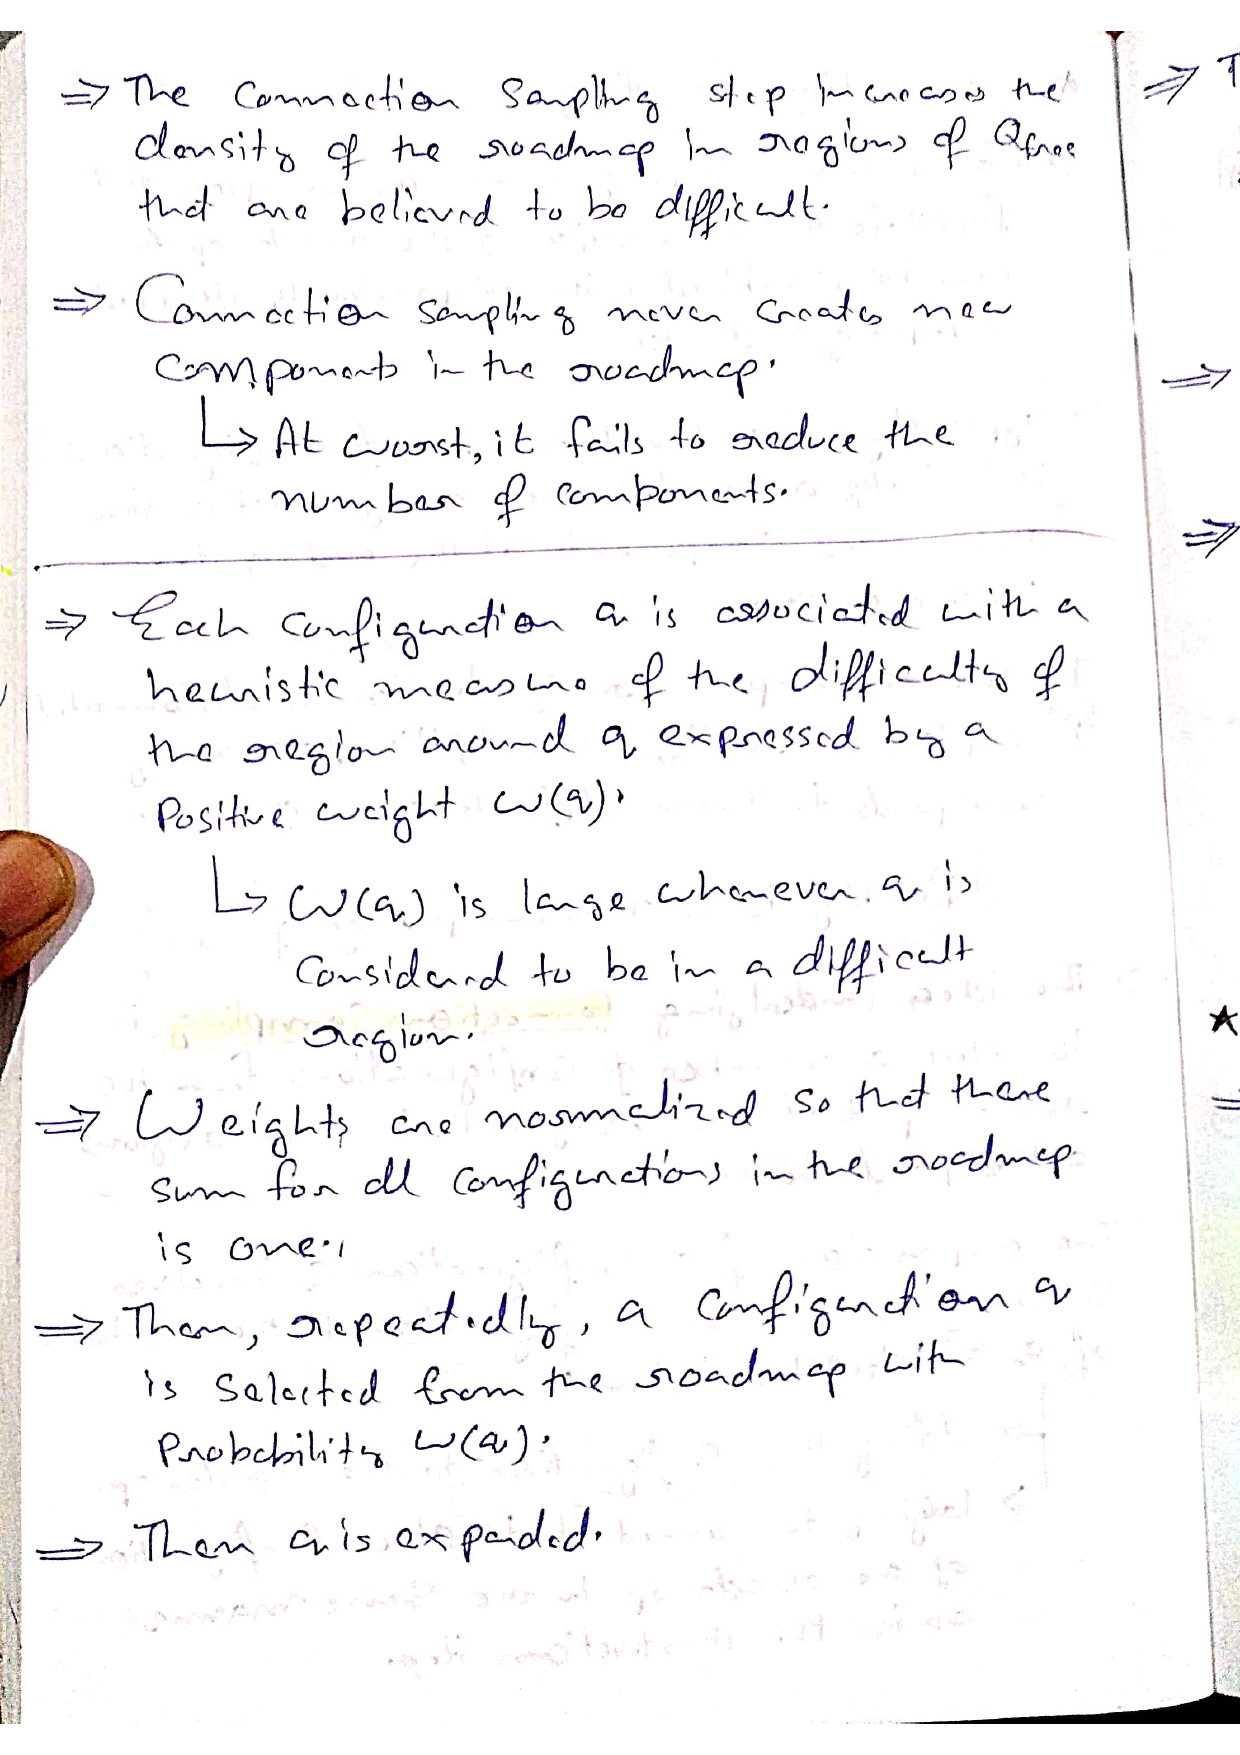 ⇒ The Connection Sampling step increases the
density of the roadmap in regions of Qfree
that are believed to be difficult.
⇒ Connection sampling never creates new
components in the roadmap.
↳ At worst, it fails to reduce the
number of components.
⇒ Each configuration q is associated with a
heuristic measure of the difficulty of
the region around q expressed by a
Positive weight w(q).
↳ W(q) is large whenever q is
Considered to be in a difficult
region.
⇒ Weights are normalized so that there
sum for all configurations in the roadmap
is one.
⇒ Then, repeatedly, a configuration q
is selected from the roadmap with
Probability w(q).
⇒ Then q is expanded.